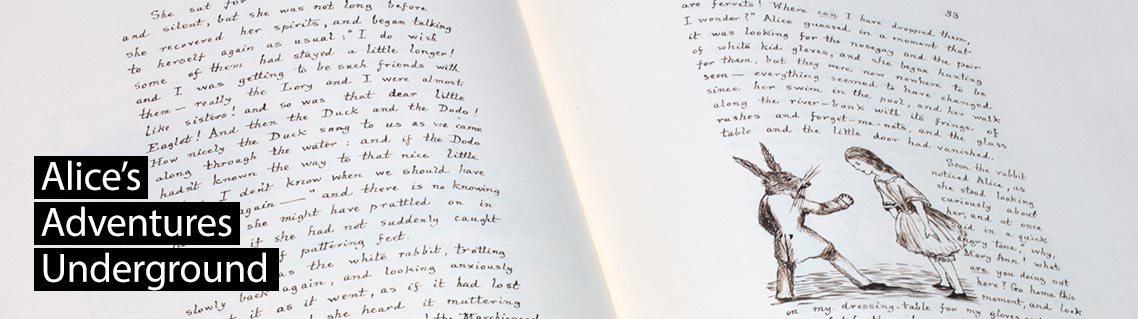 She sat for
and silent, but she was not long before
she recovered her spirits, and began talking
to herself again as usual: "I do wish
some of them had stayed a little longer!
and I was getting to be such friends with
them — really the Lory and I were almost
like sisters! and so was that dear little
Eaglet! And then the Duck and the Dodo!
How nicely the Duck sang to us as we came
along through the water: and if the Dodo
hadn't known the way to that nice little
I don't know when we should have
again —" and there is no knowing
she might have prattled on in
if she had not suddenly caught
pattering feet.
the white rabbit, trotting
slowly back again, and looking anxiously
it as it went, as if it had lost
she heard it muttering
33
are ferrets! Where can I have dropped them,
I wonder?" Alice guessed in a moment that
it was looking for the nosegay and the pair
of white kid gloves, and she began hunting
for them, but they were now nowhere to be
seen — everything seemed to have changed
since her swim in the pool, and her walk
along the river-bank with its fringe of
rushes and forget-me-nots, and the glass
table and the little door had vanished.
Soon the rabbit
noticed Alice, as
she stood looking
curiously about
her, and at once
in a quick
angry tone, "why,
Mary Ann! what
are you doing out
here? Go home this
moment, and look
on my dressing-table for my gloves
Alice's
Adventures
Underground